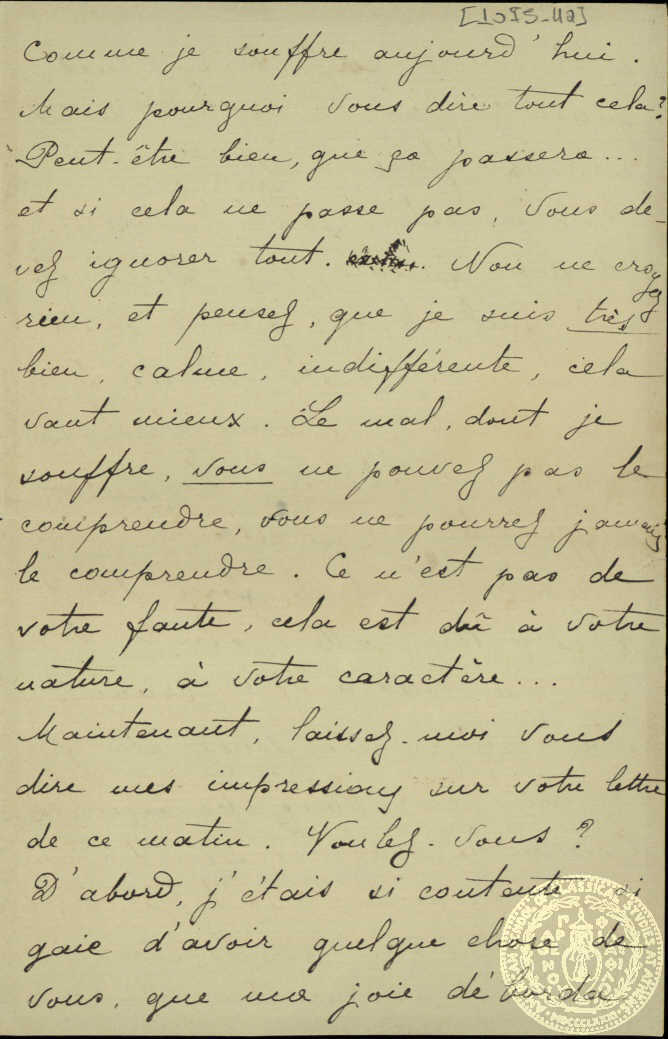 [1055-42]
Comme je souffre aujourd'hui.
Mais pourquoi vous dire tout cela?
Peut-être bien, que ça passera...
et si cela ne passe pas, vous de-
vez ignorer tout. Non ne croyez
rien, et pensez, que je suis très
bien, calme, indifférente, cela
vaut mieux. Le mal, dont je
souffre, vous ne pouvez pas le
comprendre, vous ne pourrez jamais
le comprendre. Ce n'est pas de
votre faute, cela est dû à votre
nature, à votre caractère...
Maintenant, laissez-moi vous
dire mes impressions sur votre lettre
de ce matin. Voulez-vous?
D'abord, j'étais si contente si
gaie d'avoir quelque chose de
vous, que ma joie déborda
AMERICAN SCHOOL OF CLASSICAL STUDIES AT ATHENS
MDCCCLXXXI